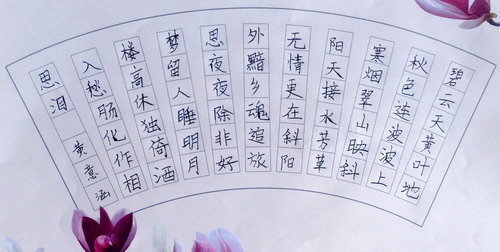 碧云天黄叶地
秋色连波波上
寒烟翠山映斜
阳天接水芳草
无情更在斜阳
外黯乡魂追旅
思夜夜除非好
梦留人睡明月
楼高休独倚酒
入愁肠化作相
思泪 黄意涵